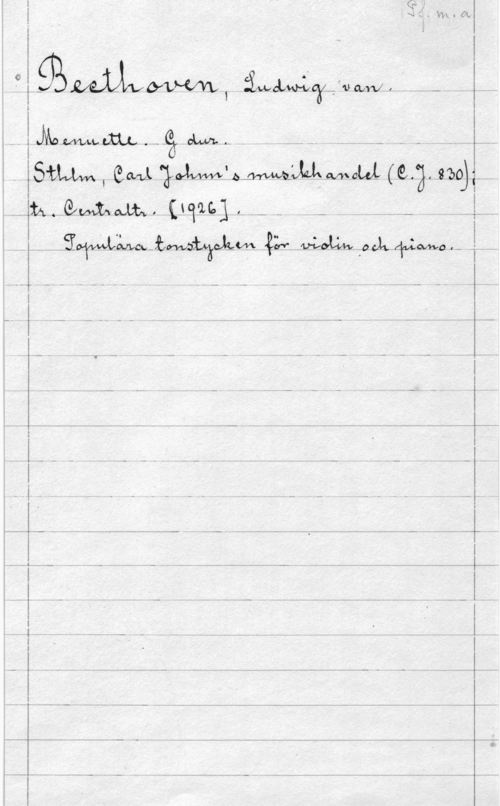 Pf. m. a
Beethoven, Ludwig van.
Menuette. G dur.
Sthlm, Carl Johnn's musikhandel (C.J. 830);
tr. Centraltr. [1926].
Populära tonstycken för violin och piano.